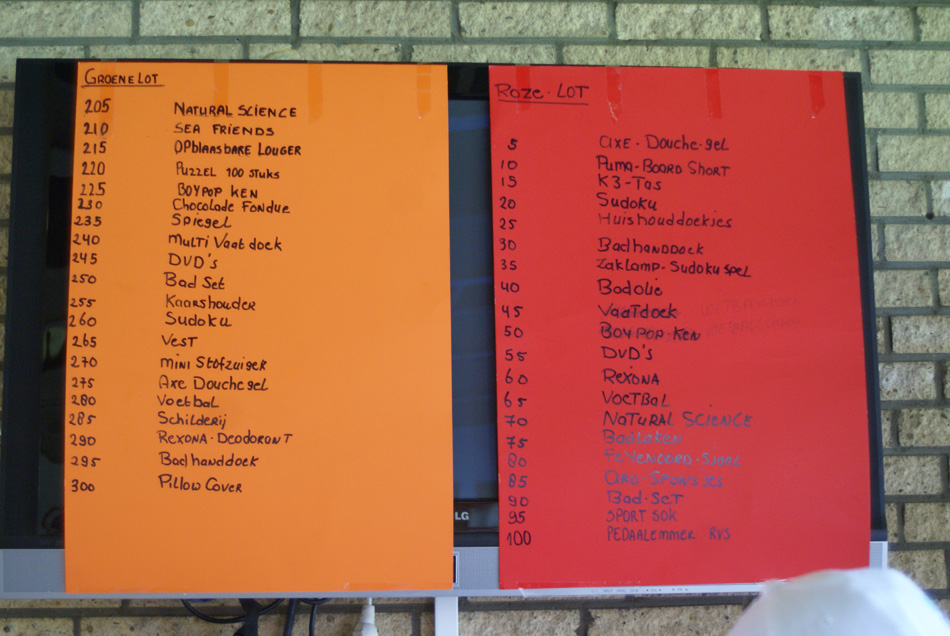 GROENE LOT
205 NATURAL SCIENCE
210 SEA FRIENDS
215 OPblaasbare LOUGER
220 PUZZEL 100 STUKS
225 BOYPOP KEN
230 Chocolade FONDUE
235 Spiegel
240 MULTI Vaatdoek
245 DVD's
250 Bad Set
255 Kaarshouder
260 Sudoku
265 VEST
270 mini Stofzuiger
275 Axe Douchegel
280 Voetbal
285 Schilderij
290 REXONA-DEODORONT
295 Badhanddoek
300 Pillow Cover
Roze-LOT
5 AXE-Douche-gel
10 Puma-Boord SHORT
15 K3-Tas
20 Sudoku
25 Huishouddoekjes
30 Badhanddoek
35 Zaklamp-Sudoku spel
40 Badolie
45 Vaatdoek
50 BOYPOP-KEN
55 DVD'S
60 REXONA
65 VOETBAL
70 NATURAL SCIENCE
75 Badlaken
80 FEYENOORD-SJAAL
85 ORO-SPONSJES
90 Bad-SET
95 SPORT SOK
100 PEDAALEMMER RVS
LG